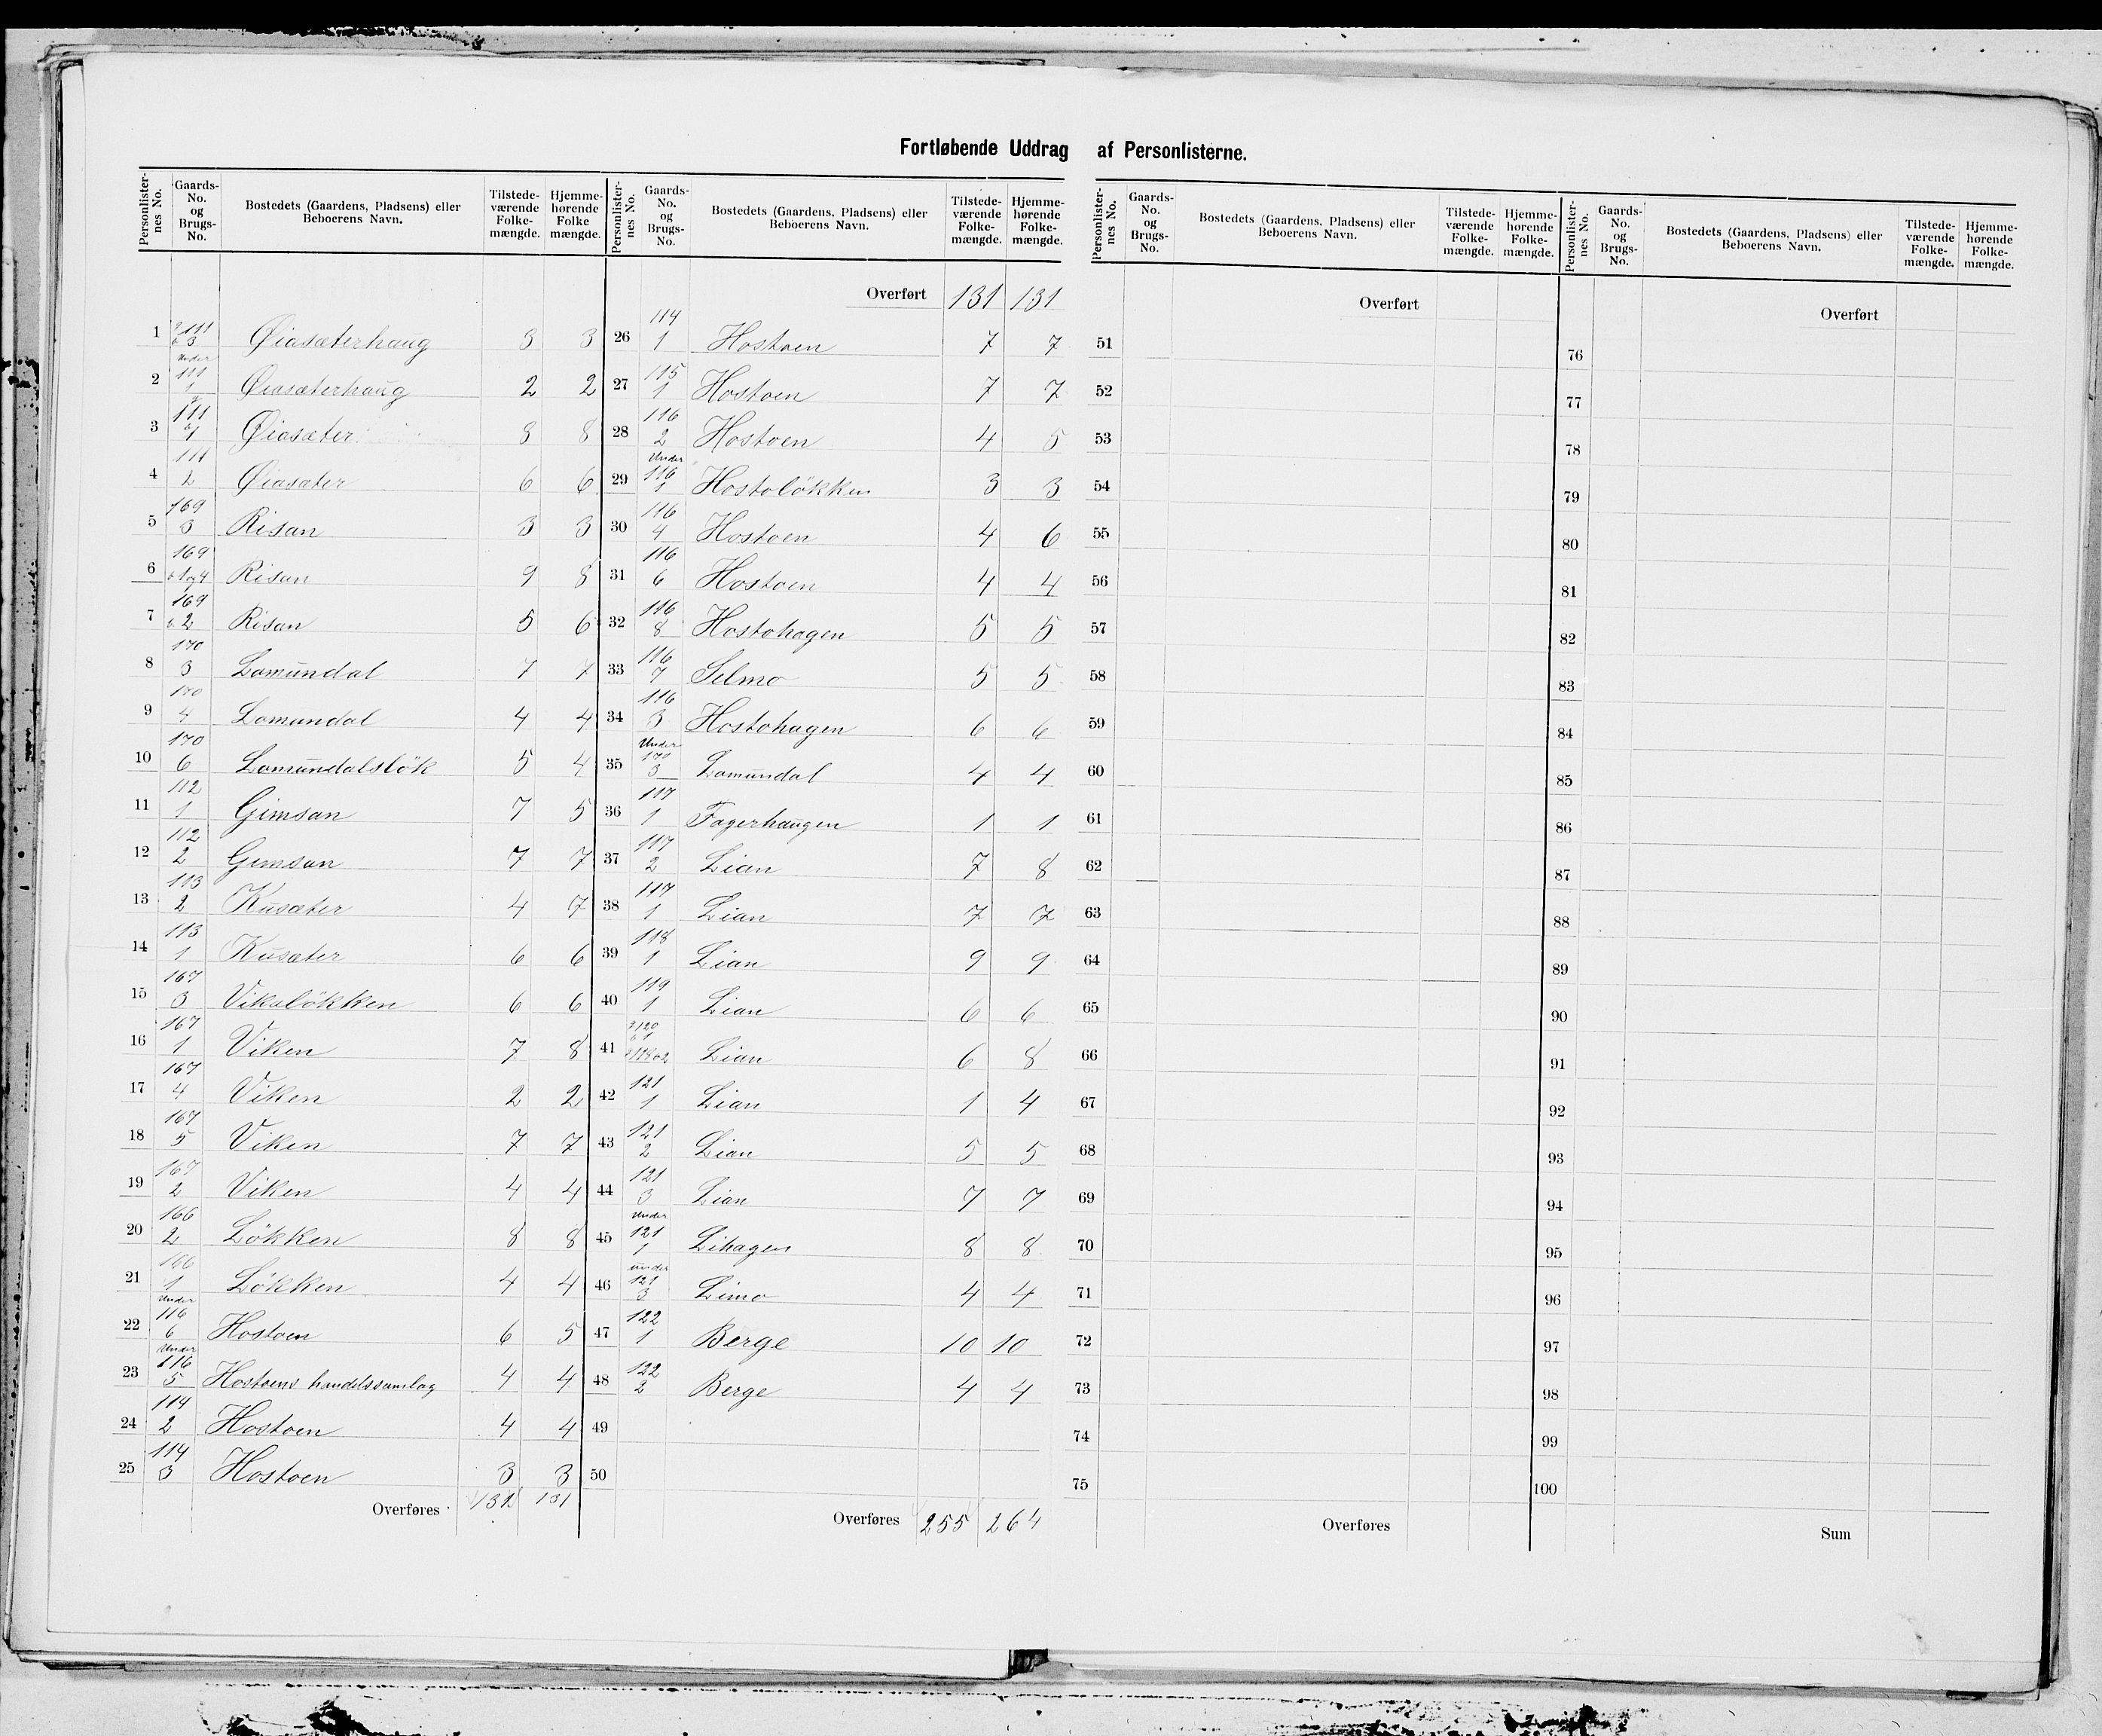 Fortløbende Uddrag af Personlisterne.
Personlister-nes No. Gaards-No. og Brugs-No. Bostedets (Gaardens, Pladsens) eller Beboerens Navn. Tilstede-værende Folke-mængde. Hjemme-hørende Folke mængde. Personlister-nes No. Gaards-No. og Brugs-No. Bostedets (Gaardens, Pladsens) eller Beboerens Navn. Tilstede-værende Folke-mængde. Hjemme-hørende Folke-mængde.
Overført 131 131
1 g 111 b 3 Øiasæterhaug 3 3
2 Under 111 1 Øiasæterhaug 2 2
3 g 111 b 1 Øiasæter 8 8
4 111 2 Øiasæter 6 6
5 169 3 Risan 3 3
6 169 b 1 og 4 Risan 9 8
7 169 b 2 Risan 5 6
8 170 3 Lomundal 7 7
9 170 4 Lomundal 4 4
10 170 6 Lomundalsløk 5 4
11 112 1 Gimsan 7 5
12 112 2 Gimsan 7 7
13 113 2 Kusæter 4 7
14 113 1 Kusæter 6 6
15 167 3 Vikaløkken 6 6
16 167 1 Viken 7 8
17 167 4 Viken 2 2
18 167 5 Viken 7 7
19 167 2 Viken 4 4
20 166 2 Lökken 8 8
21 166 1 Lökken 4 4
22 Under 116 6 Hostoen 6 5
23 Under 116 5 Hostoens handelssamlag 4 4
24 114 2 Hostoen 4 4
25 114 3 Hostoen 3 3
Overføres 131 131
26 114 1 Hostoen 7 7
27 115 1 Hostoen 7 7
28 116 2 Hostoen 4 5
29 Under 116 1 Hostolökken 3 3
30 116 4 Hostoen 4 6
31 116 6 Hostoen 4 4
32 116 8 Hostohagen 5 5
33 116 7 Selmo 5 5
34 116 3 Hostohagen 6 6
35 Under 170 3 Lomundal 4 4
36 117 1 Fagerhaugen 1 1
37 117 2 Lian 7 8
38 117 1 Lian 7 7
39 118 1 Lian 9 9
40 119 1 Lian 6 6
41 g 120 b 1 Lian 6 8
42 121 1 Lian 1 4
43 121 2 Lian 5 5
44 121 3 Lian 7 7
45 Under 121 1 Lihagen 8 8
46 under 121 3 Limo 4 4
47 122 1 Berge 10 10
48 122 2 Berge 4 4
49
50
Overføres 255 264
Personlister-nes No. Gaards-No. og Brugs-No. Bostedets (Gaardens, Pladsens) eller Beboerens Navn. Tilstede-værende Folke-mængde. Hjemme-hørende Folke-mængde. Personlister-nes No. Gaards-No. og Brugs-No. Bostedets (Gaardens, Pladsens) eller Beboerens Navn. Tilstede-værende Folke-mængde. Hjemme-hørende Folke-mængde.
Overført Overført
51 76
52 77
53 78
54 79
55 80
56 81
57 82
58 83
59 84
60 85
61 86
62 87
63 88
64 89
65 90
66 91
67 92
68 93
69 94
70 95
71 96
72 97
73 98
74 99
75 100
Overføres Sum